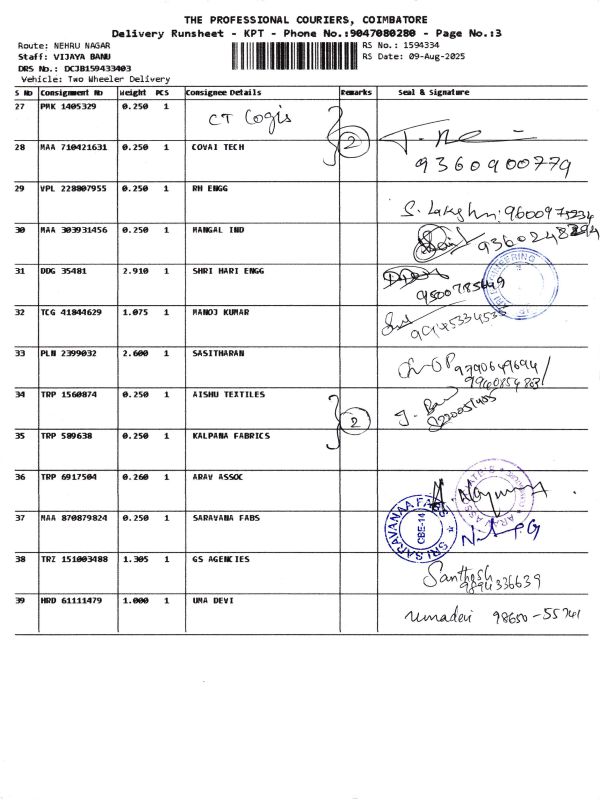 THE PROFESSIONAL COURIERS, COIMBATORE
Delivery Runsheet - KPT - Phone No.:9047080280 - Page No.:3
Route: NEHRU NAGAR RS No.: 1594334
Staff: VIJAYA BANU RS Date: 09-Aug-2025
DRS No.: DCJB159433403
Vehicle: Two Wheeler Delivery
S No Consignment No Weight PCS Consignee Details Remarks Seal & Signature
27 PMK 1405329 0.250 1 CT Logis
28 MAA 710421631 0.250 1 COVAI TECH 2 9360900779
29 VPL 228807955 0.250 1 RH ENGG
30 MAA 303931456 0.250 1 MANGAL IND
31 DDG 35481 2.910 1 SHRI HARI ENGG
32 TCG 41844629 1.075 1 MANOJ KUMAR
33 PLN 2399032 2.600 1 SASITHARAN
34 TRP 1560874 0.250 1 AISHU TEXTILES 2
35 TRP 589638 0.250 1 KALPANA FABRICS
36 TRP 6917504 0.260 1 ARAV ASSOC
37 MAA 870879824 0.250 1 SARAVANA FABS SRI SARAVANAA FABS CBE-14
38 TRZ 151003488 1.305 1 GS AGENCIES Santhosh 9894336639
39 HRD 61111479 1.000 1 UMA DEVI Umadevi 98650-55741